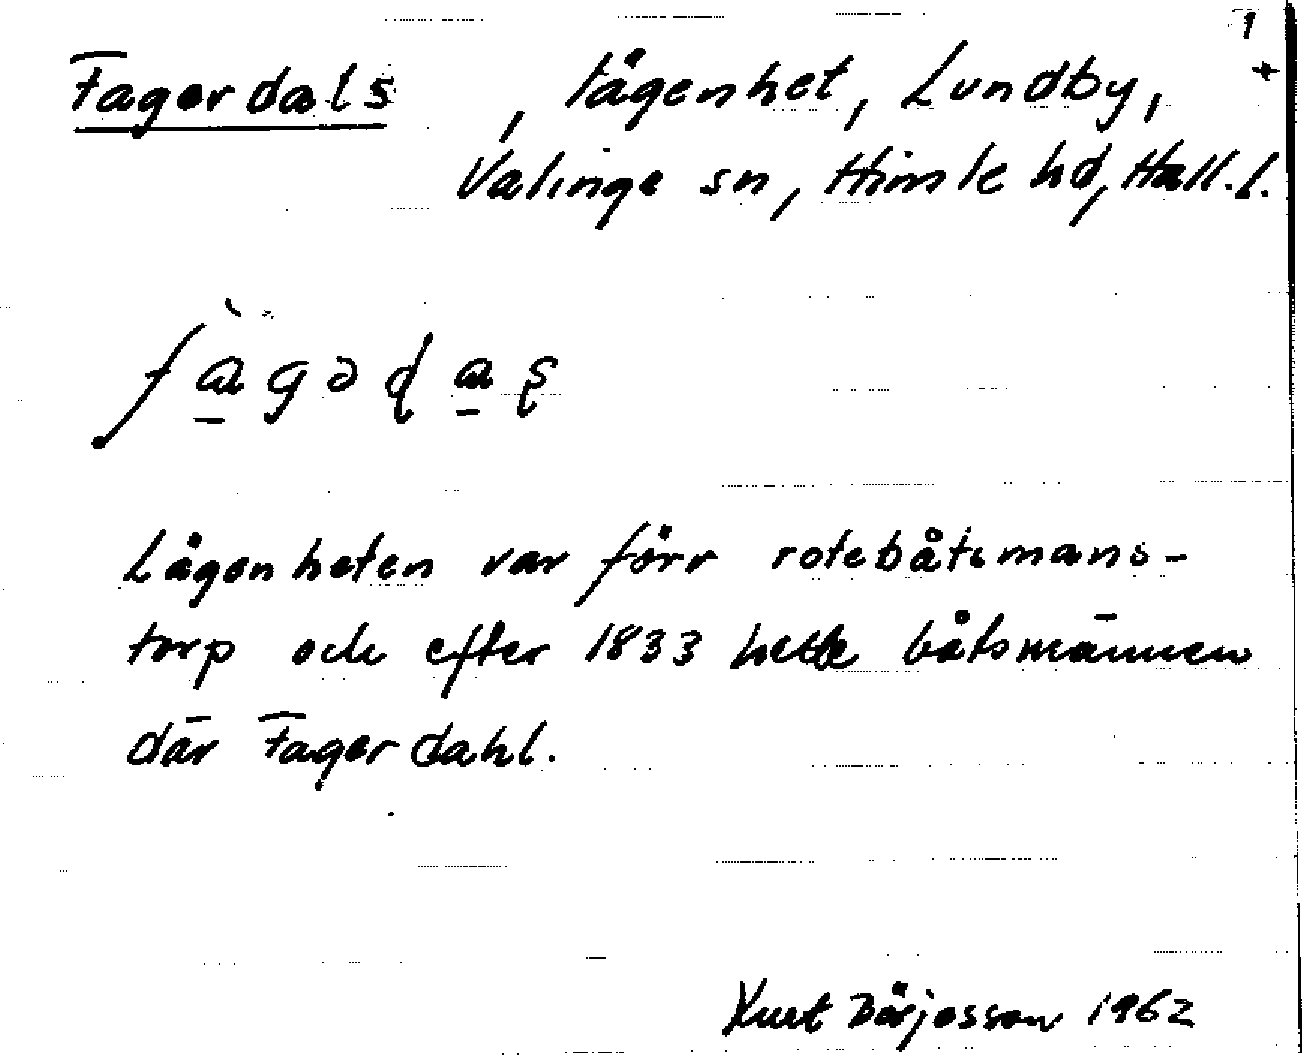 1
+
Fagerdals, lägenhet, Lundby,
Valinge sn, Himle hd, Hall. l.
fàgədas
Lägenheten var förr rotebåtsmans-
torp och efter 1833 hette båtsmännen
där Fagerdahl.
Kurt Börjesson 1962